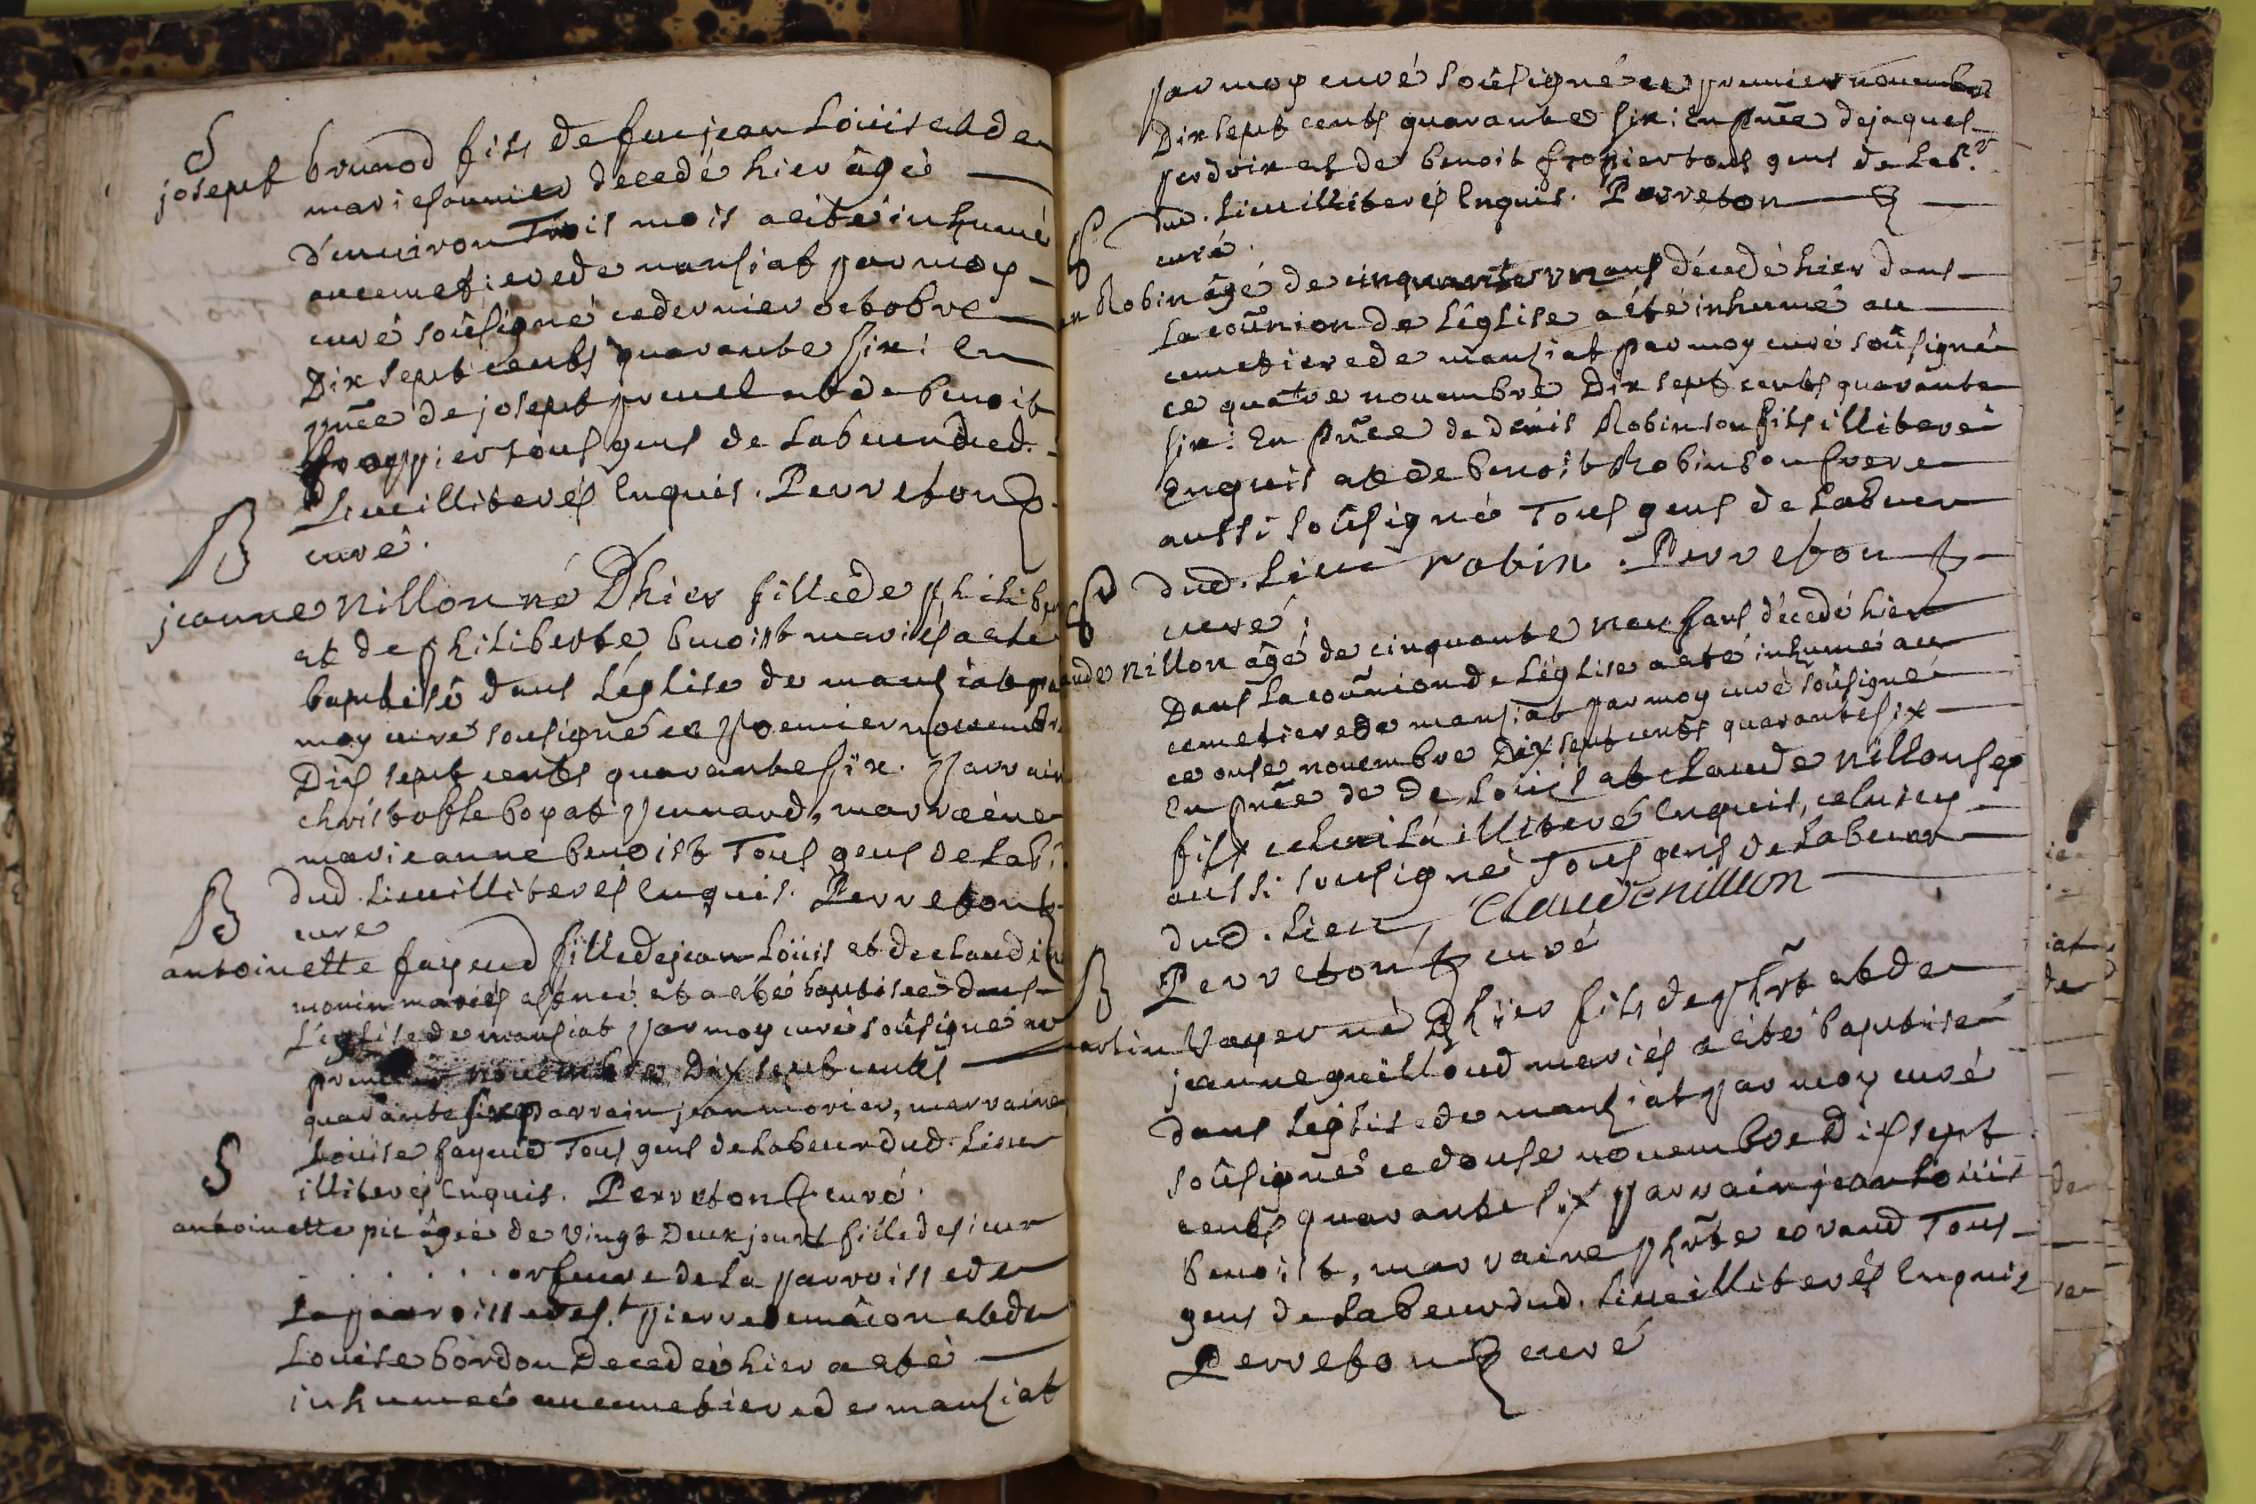 S
josept brunod fils de feu jean Loüis et de
marie sonnier decedé hier âgé
d'environ trois mois a eité inhumé
au cemetiere de mansiat par moy
curé soûsigné ce dernier octobre
Dix sept cents quarante six: En
pnce de josept pruel et de benoit
froppier tous gens de labeur dud.
Lieu illiterés Enquis. Perreton
curé.
B
jeanne Nillon né Dhier fille de philiber
et de philiberte benoist mariés a eté
baptisé dans L'église de mansiat par
moy curé sousigné ce premier novembre
Dis sept cents quarante six. parrain
christofle boyat pennard, marraène
marieanne benoist Tous gens de Lab.
dud. Lieu illiterés Enquis. Perreton
curé
B
antoinette fayeud fille de jean Loüis et de claudine
monin mariés est née et a eté baptiseé dans
L'église de mansiat par moy curé soûsigné ce
premier novembre Dix sept cents
quarante six parrain jean morier, marraine
Loüise fayeud Tous gens de Labeur dud. Lieu
illiterés Enquis. Perreton curé.
S
antoinette pic âgeé de vingt Deux jours fille de sieur
. . . . . orfeuvre de La parroisse de
La parroisse de st. pierre de mâcon et de
Louise bordon Decedeé hier a eté
inhumeé au cemetiere de mansiat
par moy curé soûsigné ce premier novembre
Dix sept cents quarante six: En pnce de jaques
perdrix et de benoit fropier tous gens de Labr.
dud. Lieu illiterés Enquis. Perreton
curé.
S
Robin âgé de cinquante ans décedé hier dans
La comnion de L'église a été inhumé au
cemetiere de mansiat par moy curé soûsigné
ce quatre novembre Dix sept cents quarante
six: En pnce de denis Robin son fils illiteré
Enquis et de benoit Robin son frere
aussi soûsigné Tous gens de Labeur
dud. Lieu robin. Perreton
curé.
S
Nillon âgé de cinquante neuf ans décedé hier
Dans La comnion de L'église a eté inhumé au
cemetiere de mansiat par moy curé soûsigné
ce onse novembre Dix sept cents quarante six
En pnce de de Louis et claude Nillon ses
fils celui Lá illiteré Enquis, celuicy
aussi sousigné Tous gens de Labeur
dud. Lieu, Claude nillion
Perreton curé
B
martin Voyer né Dhier fils de phrt et de
jeanne guillioud mariés a eité baptisé
dans L'église de mansiat par moy curé
soûsigné ce douse novembre Dis sept
cents quarante six parrain jean Loüis
benoist, marraine phrte corand Tous
gens de Labeur dud. Lieu illiterés Enquis
Perreton curé